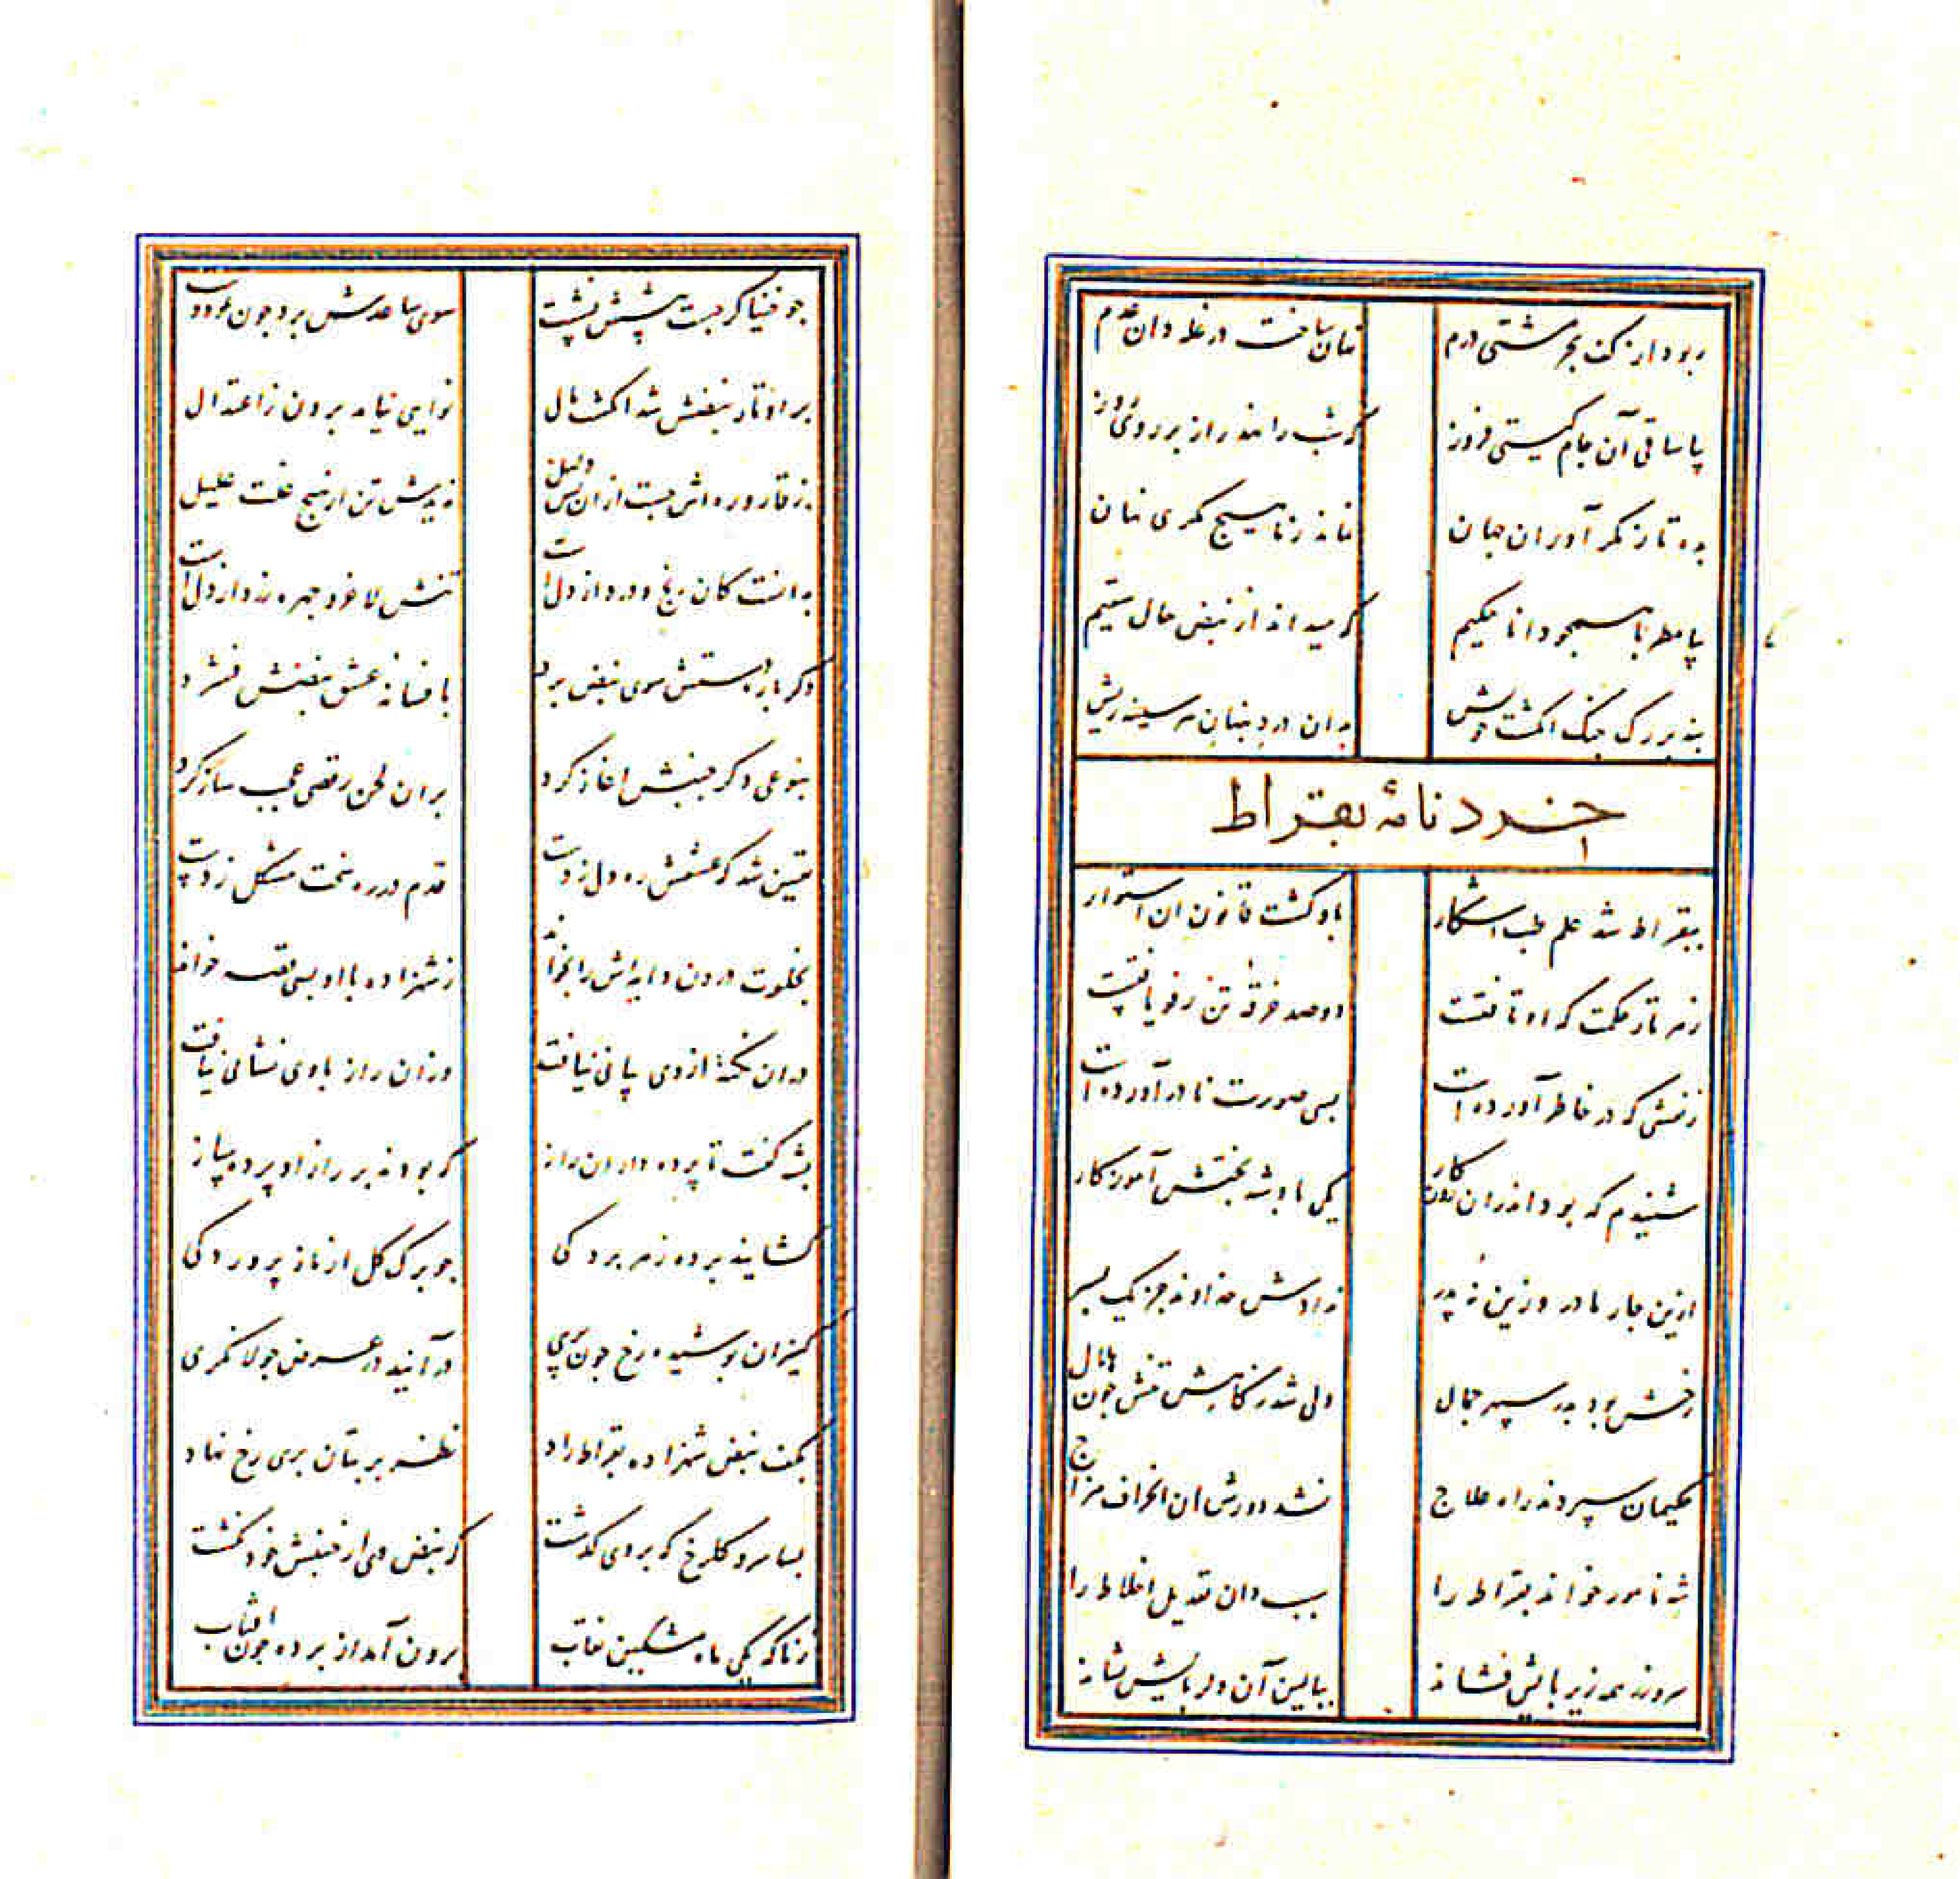 ربود از کف بحر مشتی درم نهان ساخت در غله دان عدم
بیا ساقی آن جام گیتی فروز که شب را نهد راز بر روی روز
بده تا ز مکر آوران جهان نماند ز ما هیچ مکری نهان
بیا مطربا همچو دانا حکیم که میداند از نبض حال سقیم
بنه بر رگ چنگ انگشت خویش بدان درد پنهان هر سینه ریش
خردنامهٔ بقراط
ببقراط شد علم طب اشکار باو گشت قانون ان استوار
ز هر تار حکمت که او تافتست دو صد خرقهٔ تن رفو یافتست
ز نقشی که در خاطر آورده است بسی صورت نادر آورده است
شنیدم که بود اندران روزگار یکی پادشه بختش آموزگار
ازین چار مادر وزین نه پدر ندادش خداوند جز یک پسر
رخش بود بدر سپهر جمال ولی شد ز کاهش تنش چون هلال
حکیمان سپردند راه علاج نشد دورش ان انحراف مزاج
شه نامور خواند بقراط را سبب دان تعدیل اخلاط را
سروزر همه زیر پایش فشاند ببالین آن دلربایش نشاند
چو خنیاگر چست پیشش نشست سوی ساعدش برد چون عود دست
بر اوتار نبضش شد انگشت مال نوایی نیامد برون ز اعتدال
ز قاروره اش جست ازان پس دلیل ندیدش تن از هیچ علت علیل
بدانست کان رنج و درد از دلست تنش لاغر و چهره زرد از دلست
دگر باره دستش سوی نبض برد بافسانهٔ عشق نبضش فشرد
بنوعی دگر جنبش اغاز کرد بران لحن رقصی عجب ساز کرد
یقین شد که عشقش ره دل زدست قدم در ره سخت مشکل زدست
بخلوت درون دایه اش را بخواند ز شهزاده با او بسی قصه خواند
دران نکته از وی بیانی نیافت وزان راز با وی نشانی نیافت
بشه گفت تا پرده داران راز که بودند بر راز او پرده ساز
گشایند پرده ز هر بردگی چو برگ گل از ناز پروردگی
کنیزان پوشیده رخ چون پری در آیند در عرض جولانگری
بکف نبض شهزاده بقراط راد نظر بر بتان پری رخ نهاد
بسا سرو گلرخ که بر وی گذشت که نبض وی از جنبش خود نگشت
ز ناگه یکی ماه مشکین نقاب برون آمد از پرده چون افتاب